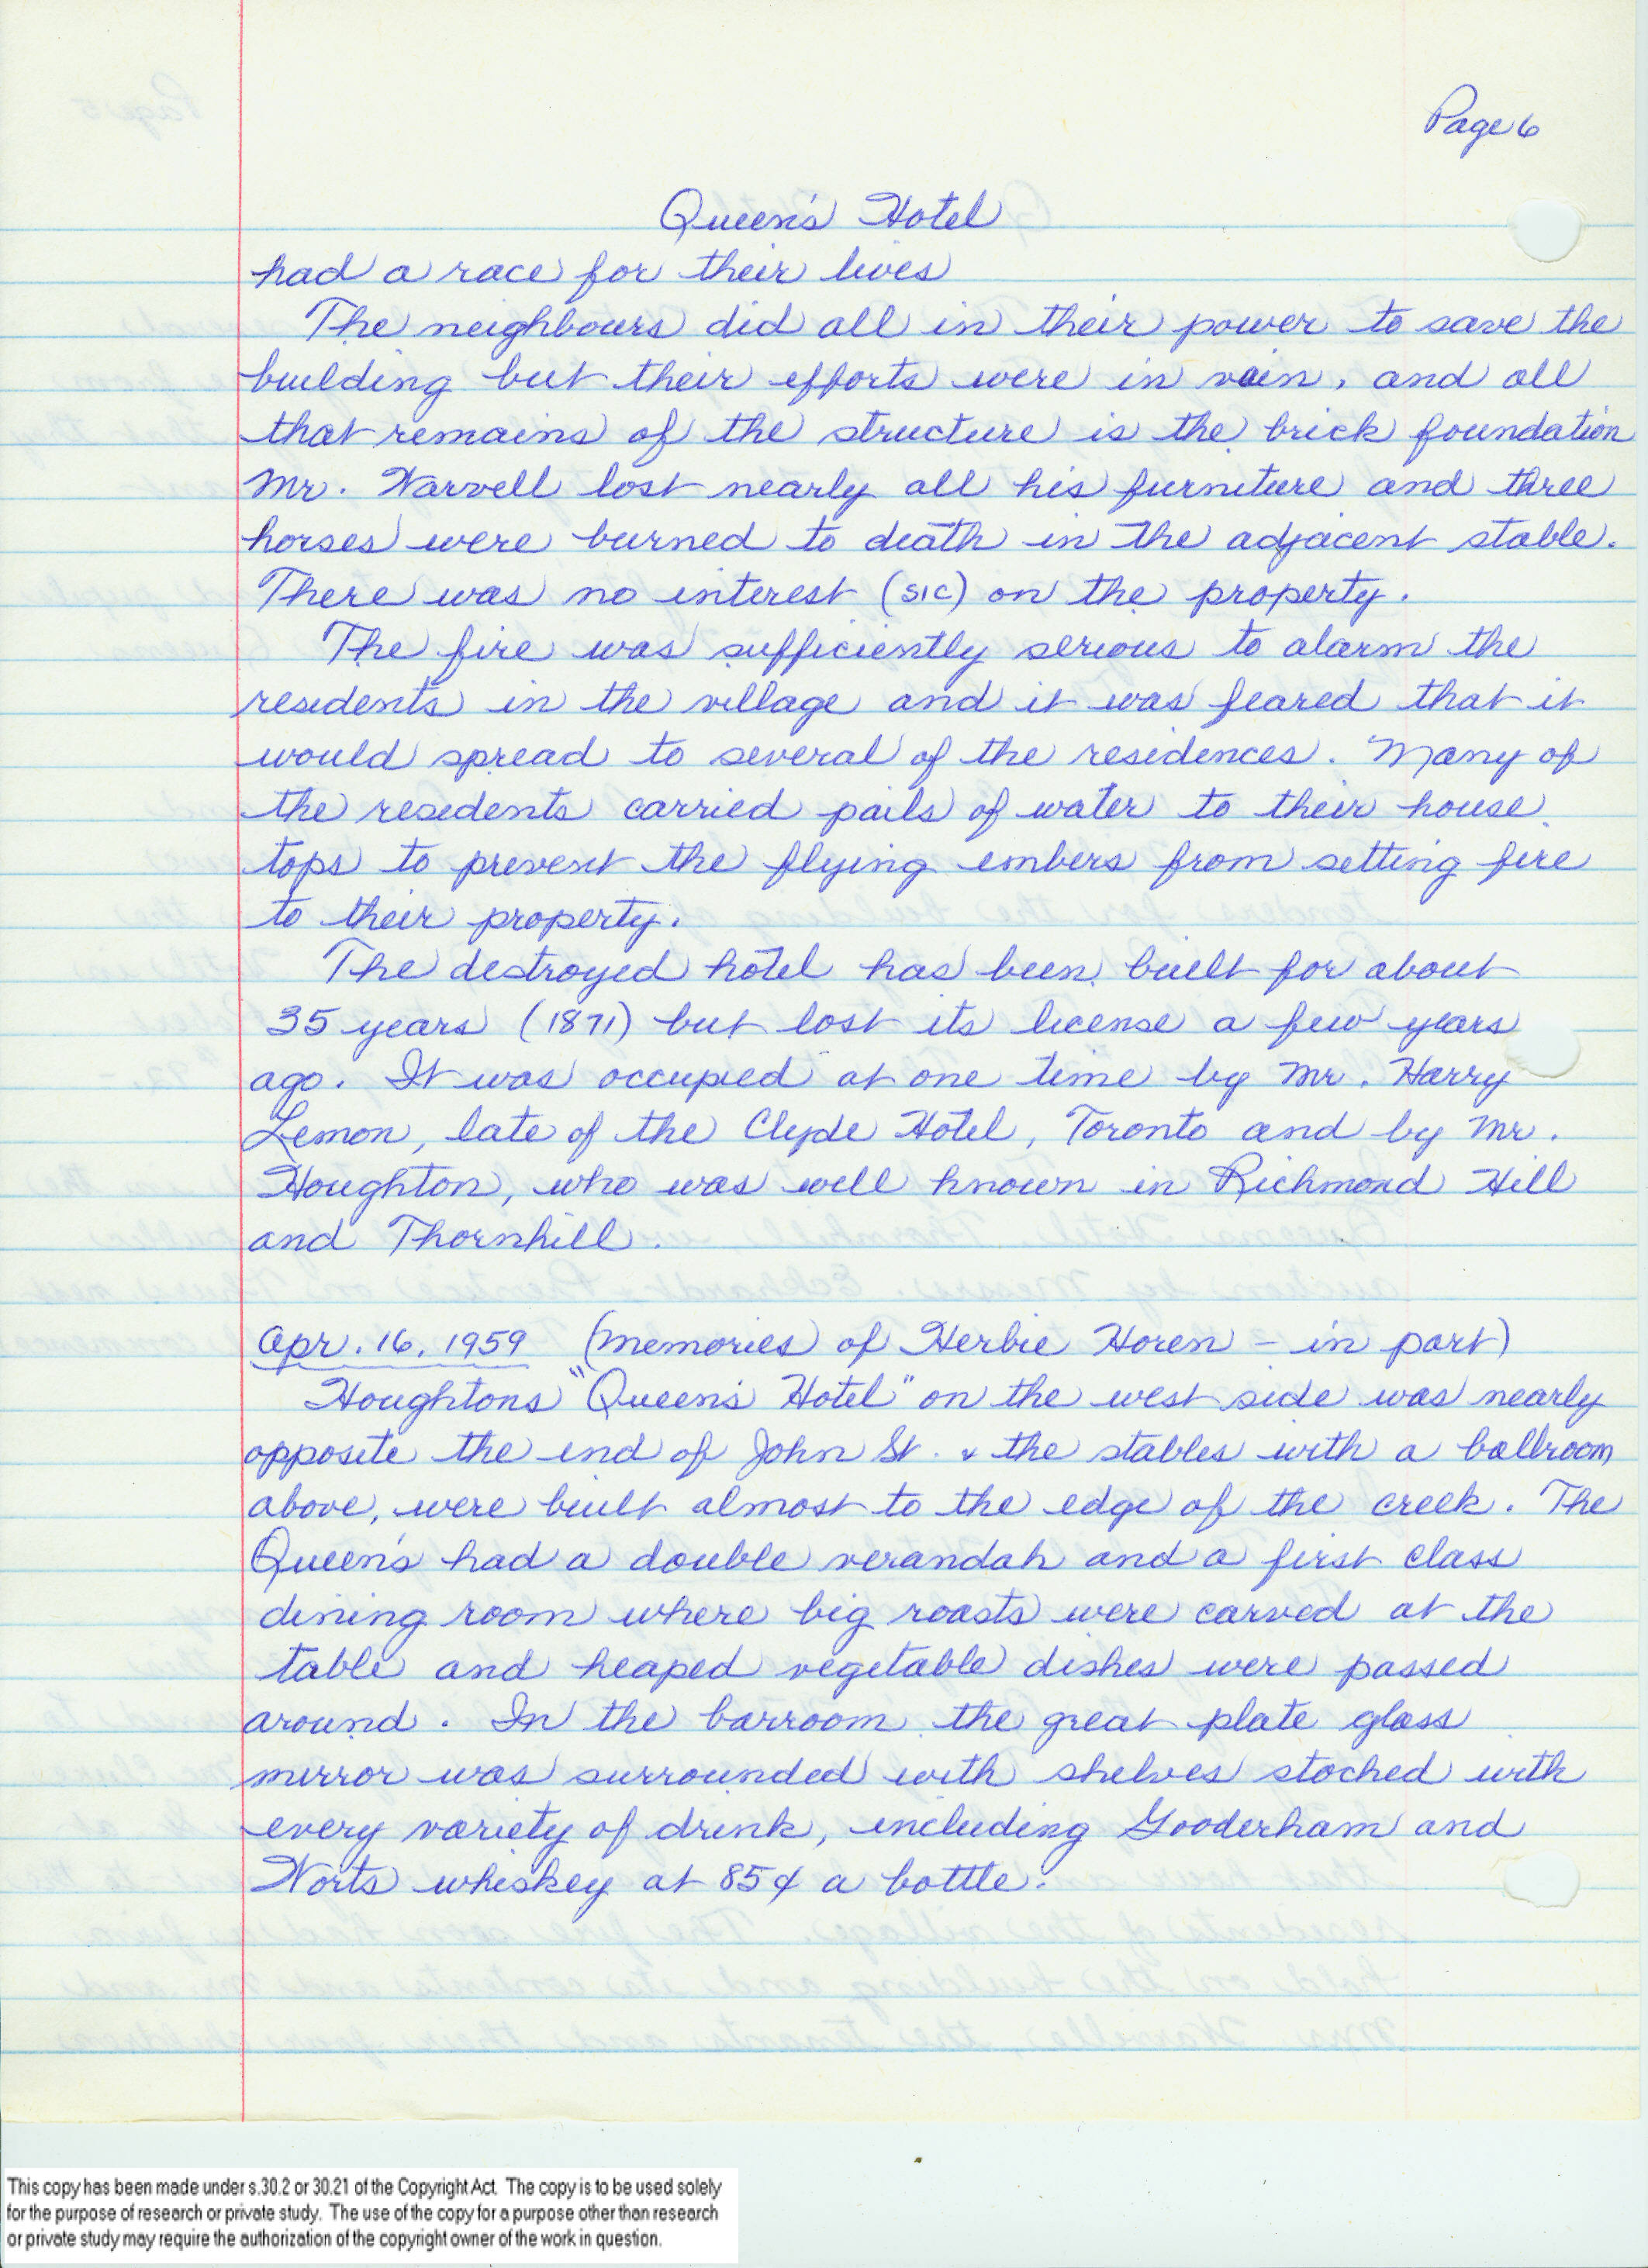 Page 6
Queen's Hotel
had a race for their lives
The neighbours did all in their power to save the
building but their efforts were in vain, and all
that remains of the structure is the brick foundation
Mr. Warvell lost nearly all his furniture and three
horses were burned to death in the adjacent stable.
There was no interest (SIC) on the property.
The fire was sufficiently serious to alarm the
residents in the village and it was feared that it
would spread to several of the residences. Many of
the residents carried pails of water to their house
tops to prevent the flying embers from setting fire
to their property.
The destroyed hotel has been built for about
35 years (1871) but lost its license a few years
ago. It was occupied at one time by Mr. Harry
Lemon, late of the Clyde Hotel, Toronto and by Mr.
Houghton, who was well known in Richmond Hill
and Thornhill.
Apr. 16, 1959 (Memories of Herbie Horen - in part)
Houghtons "Queen's Hotel" on the west side was nearly
opposite the end of John St. & the stables with a ballroom
above, were built almost to the edge of the creek. The
Queen's had a double verandah and a first class
dining room where big roasts were carved at the
table and heaped vegetable dishes were passed
around. In the barroom the great plate glass
mirror was surrounded with shelves stocked with
every variety of drink, including Gooderham and
Worts whiskey at 85¢ a bottle!
This copy has been made under s.30.2 or 30.21 of the Copyright Act. The copy is to be used solely
for the purpose of research or private study. The use of the copy for a purpose other than research
or private study may require the authorization of the copyright owner of the work in question.